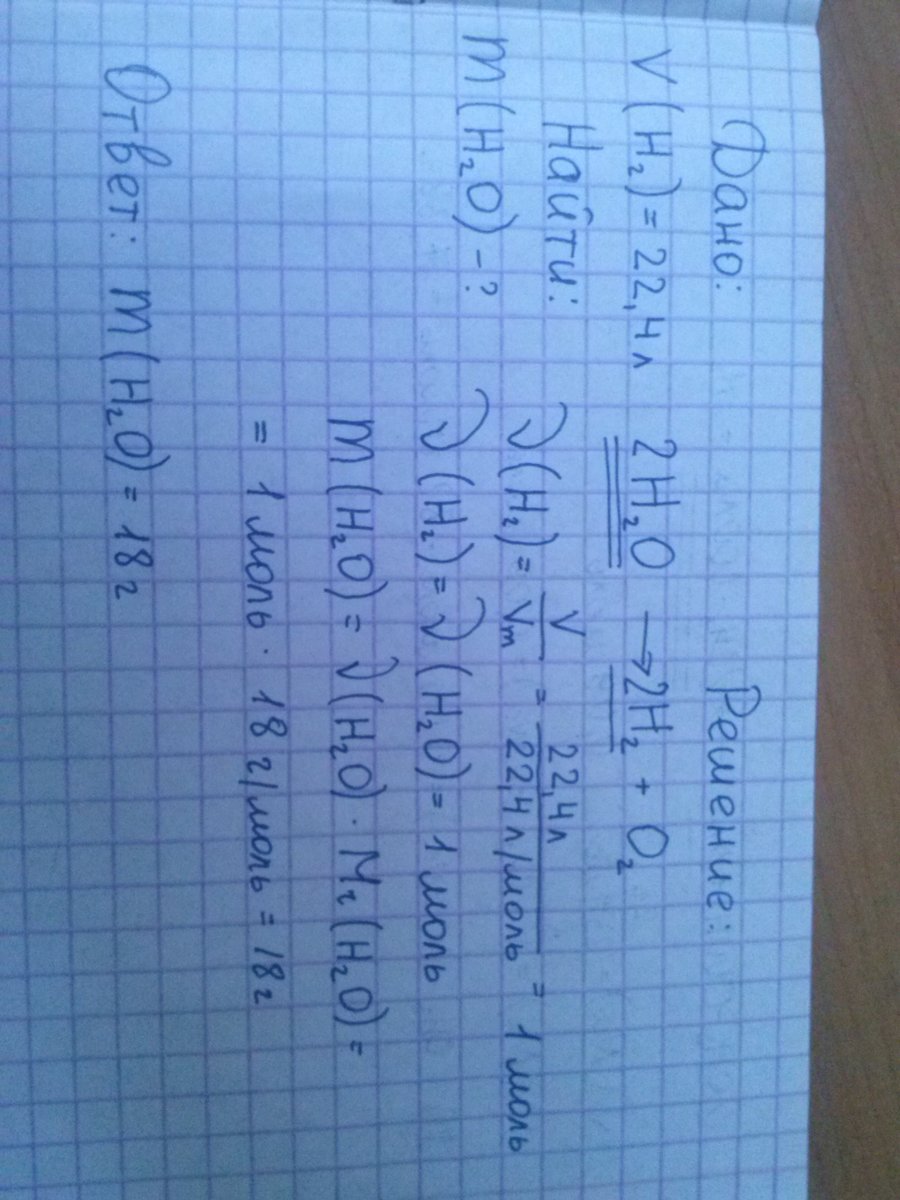 Дано:
V(H₂) = 22,4 л
Найти:
m(H₂O) - ?
Решение:
2H₂O → 2H₂ + O₂
ν(H₂) = V/Vm = 22,4л/22,4 л/моль = 1 моль
ν(H₂) = ν(H₂O) = 1 моль
m(H₂O) = ν(H₂O) · Mr(H₂O) =
= 1 моль · 18 г/моль = 18 г
Ответ: m(H₂O) = 18 г